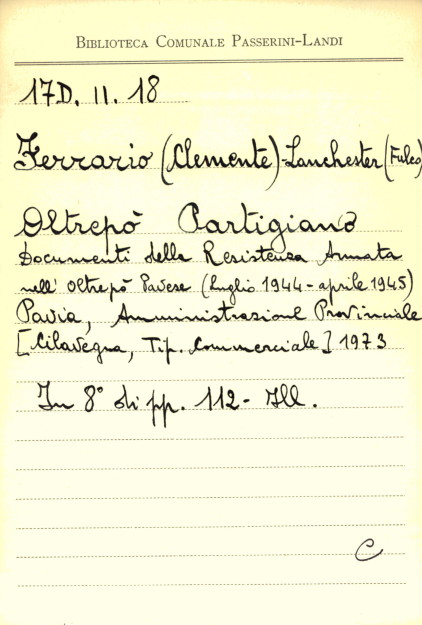 BIBLIOTECA COMUNALE PASSERINI-LANDI
17D. II. 18
Ferrario (Clemente)-Lanchester (Fulco)
Oltrepò Partigiano
Documenti della Resistenza Armata
nell' Oltrepò Pavese (luglio 1944-aprile 1945)
Pavia, Amministrazione Provinciale
[Cilavegna, Tip. Commerciale] 1973
In 8° di pp. 112- Ill.
C